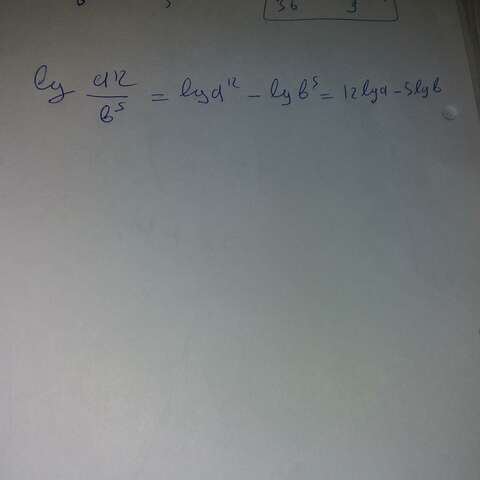 36 3
lg a12/b^5 = lg a^12 - lg b^5 = 12 lg a - 5 lg b